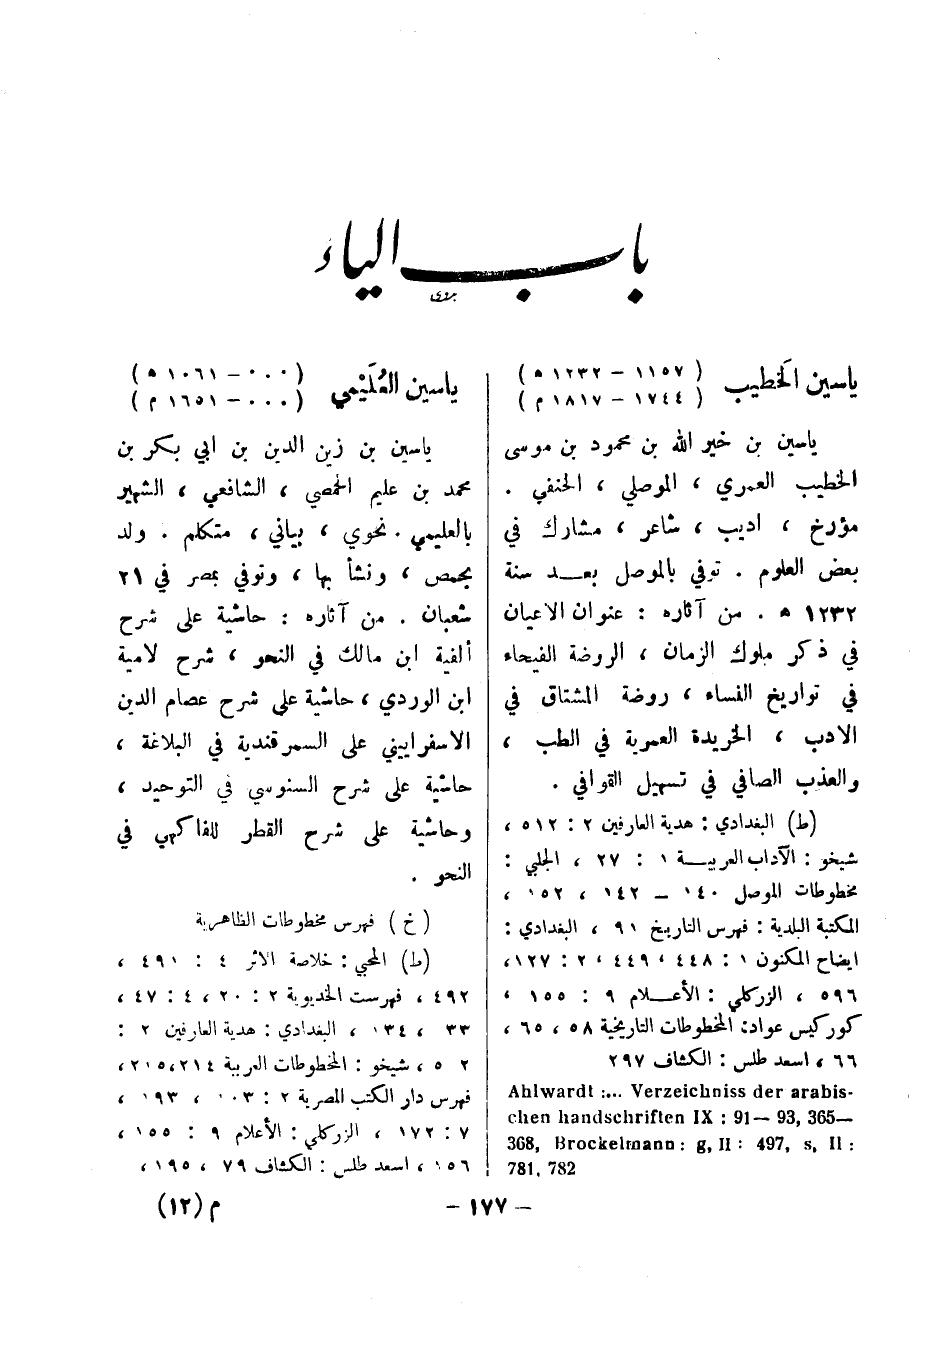 باب الياء
ياسين الخطيب
( ١١٥٧ – ١٢٣٢ ه )
( ١٧٤٤ – ١٨١٧ م )
ياسين بن خير الله بن محمود بن موسى
الخطيب العمري ، الموصلي ، الحنفي .
مؤرخ ، اديب ، شاعر ، مشارك في
بعض العلوم . توفي بالموصل بعد سنة
١٢٣٢ ه . من آثاره : عنوان الاعيان
في ذكر ملوك الزمان ، الروضة الفيحاء
في تواريخ النساء ، روضة المشتاق في
الادب ، الخريدة العمرية في الطب ،
والعذب الصافي في تسهيل القوافي .
(ط) البغدادي : هدية العارفين ٢ : ٥١٢ ،
شيخو : الآداب العربية ١ : ٢٧ ، الجلبي :
مخطوطات الموصل ١٤٠ – ١٤٢ ، ١٥٢ ،
المكتبة البلدية : فهرس التاريخ ٩١ ، البغدادي :
ايضاح المكنون ١ : ٤٤٨ ، ٤٤٩ ، ٢ : ١٢٧ ،
٥٩٦ ، الزركلي : الأعلام ٩ : ١٥٥ ،
كوركيس عواد: المخطوطات التاريخية ٥٨ ، ٦٥ ،
٦٦ ، اسعد طلس : الكشاف ٢٩٧
Ahlwardt :... Verzeichniss der arabis-
chen handschriften IX : 91— 93, 365—
368, Brockelmann : g, II : 497, s, II :
781, 782
ياسين العُلَيْمي
( ٠٠٠ – ١٠٦١ ه )
( ٠٠٠ – ١٦٥١ م )
ياسين بن زين الدين بن ابي بكر بن
محمد بن عليم الحمصي ، الشافعي ، الشهير
بالعليمي . نحوي ، بياني ، متكلم . ولد
بحمص ، ونشأ بها ، وتوفي بمصر في ٢١
شعبان . من آثاره : حاشية على شرح
ألفية ابن مالك في النحو ، شرح لامية
ابن الوردي ، حاشية على شرح عصام الدين
الاسفراييني على السمرقندية في البلاغة ،
حاشية على شرح السنوسي في التوحيد ،
وحاشية على شرح القطر للفاكهي في
النحو .
( خ ) فهرس مخطوطات الظاهرية
(ط) المحبي : خلاصة الاثر ٤ : ٤٩١ ،
٤٩٢ ، فهرست الخديوية ٢ : ٢٠ ، ٤ : ٤٧ ،
٣٣ ، ١٣٤ ، البغدادي : هدية العارفين ٢ :
٥ ٢ ، شيخو : المخطوطات العربية ٢١٤ ، ٢٠٥ ،
فهرس دار الكتب المصرية ٢ : ١٠٣ ، ١٩٣ ،
٧ : ١٧٢ ، الزركلي : الأعلام ٩ : ١٥٥ ،
١٥٦ ، اسعد طلس : الكشاف ٧٩ ، ١٩٥ ،
– ١٧٧ –
م (١٢)